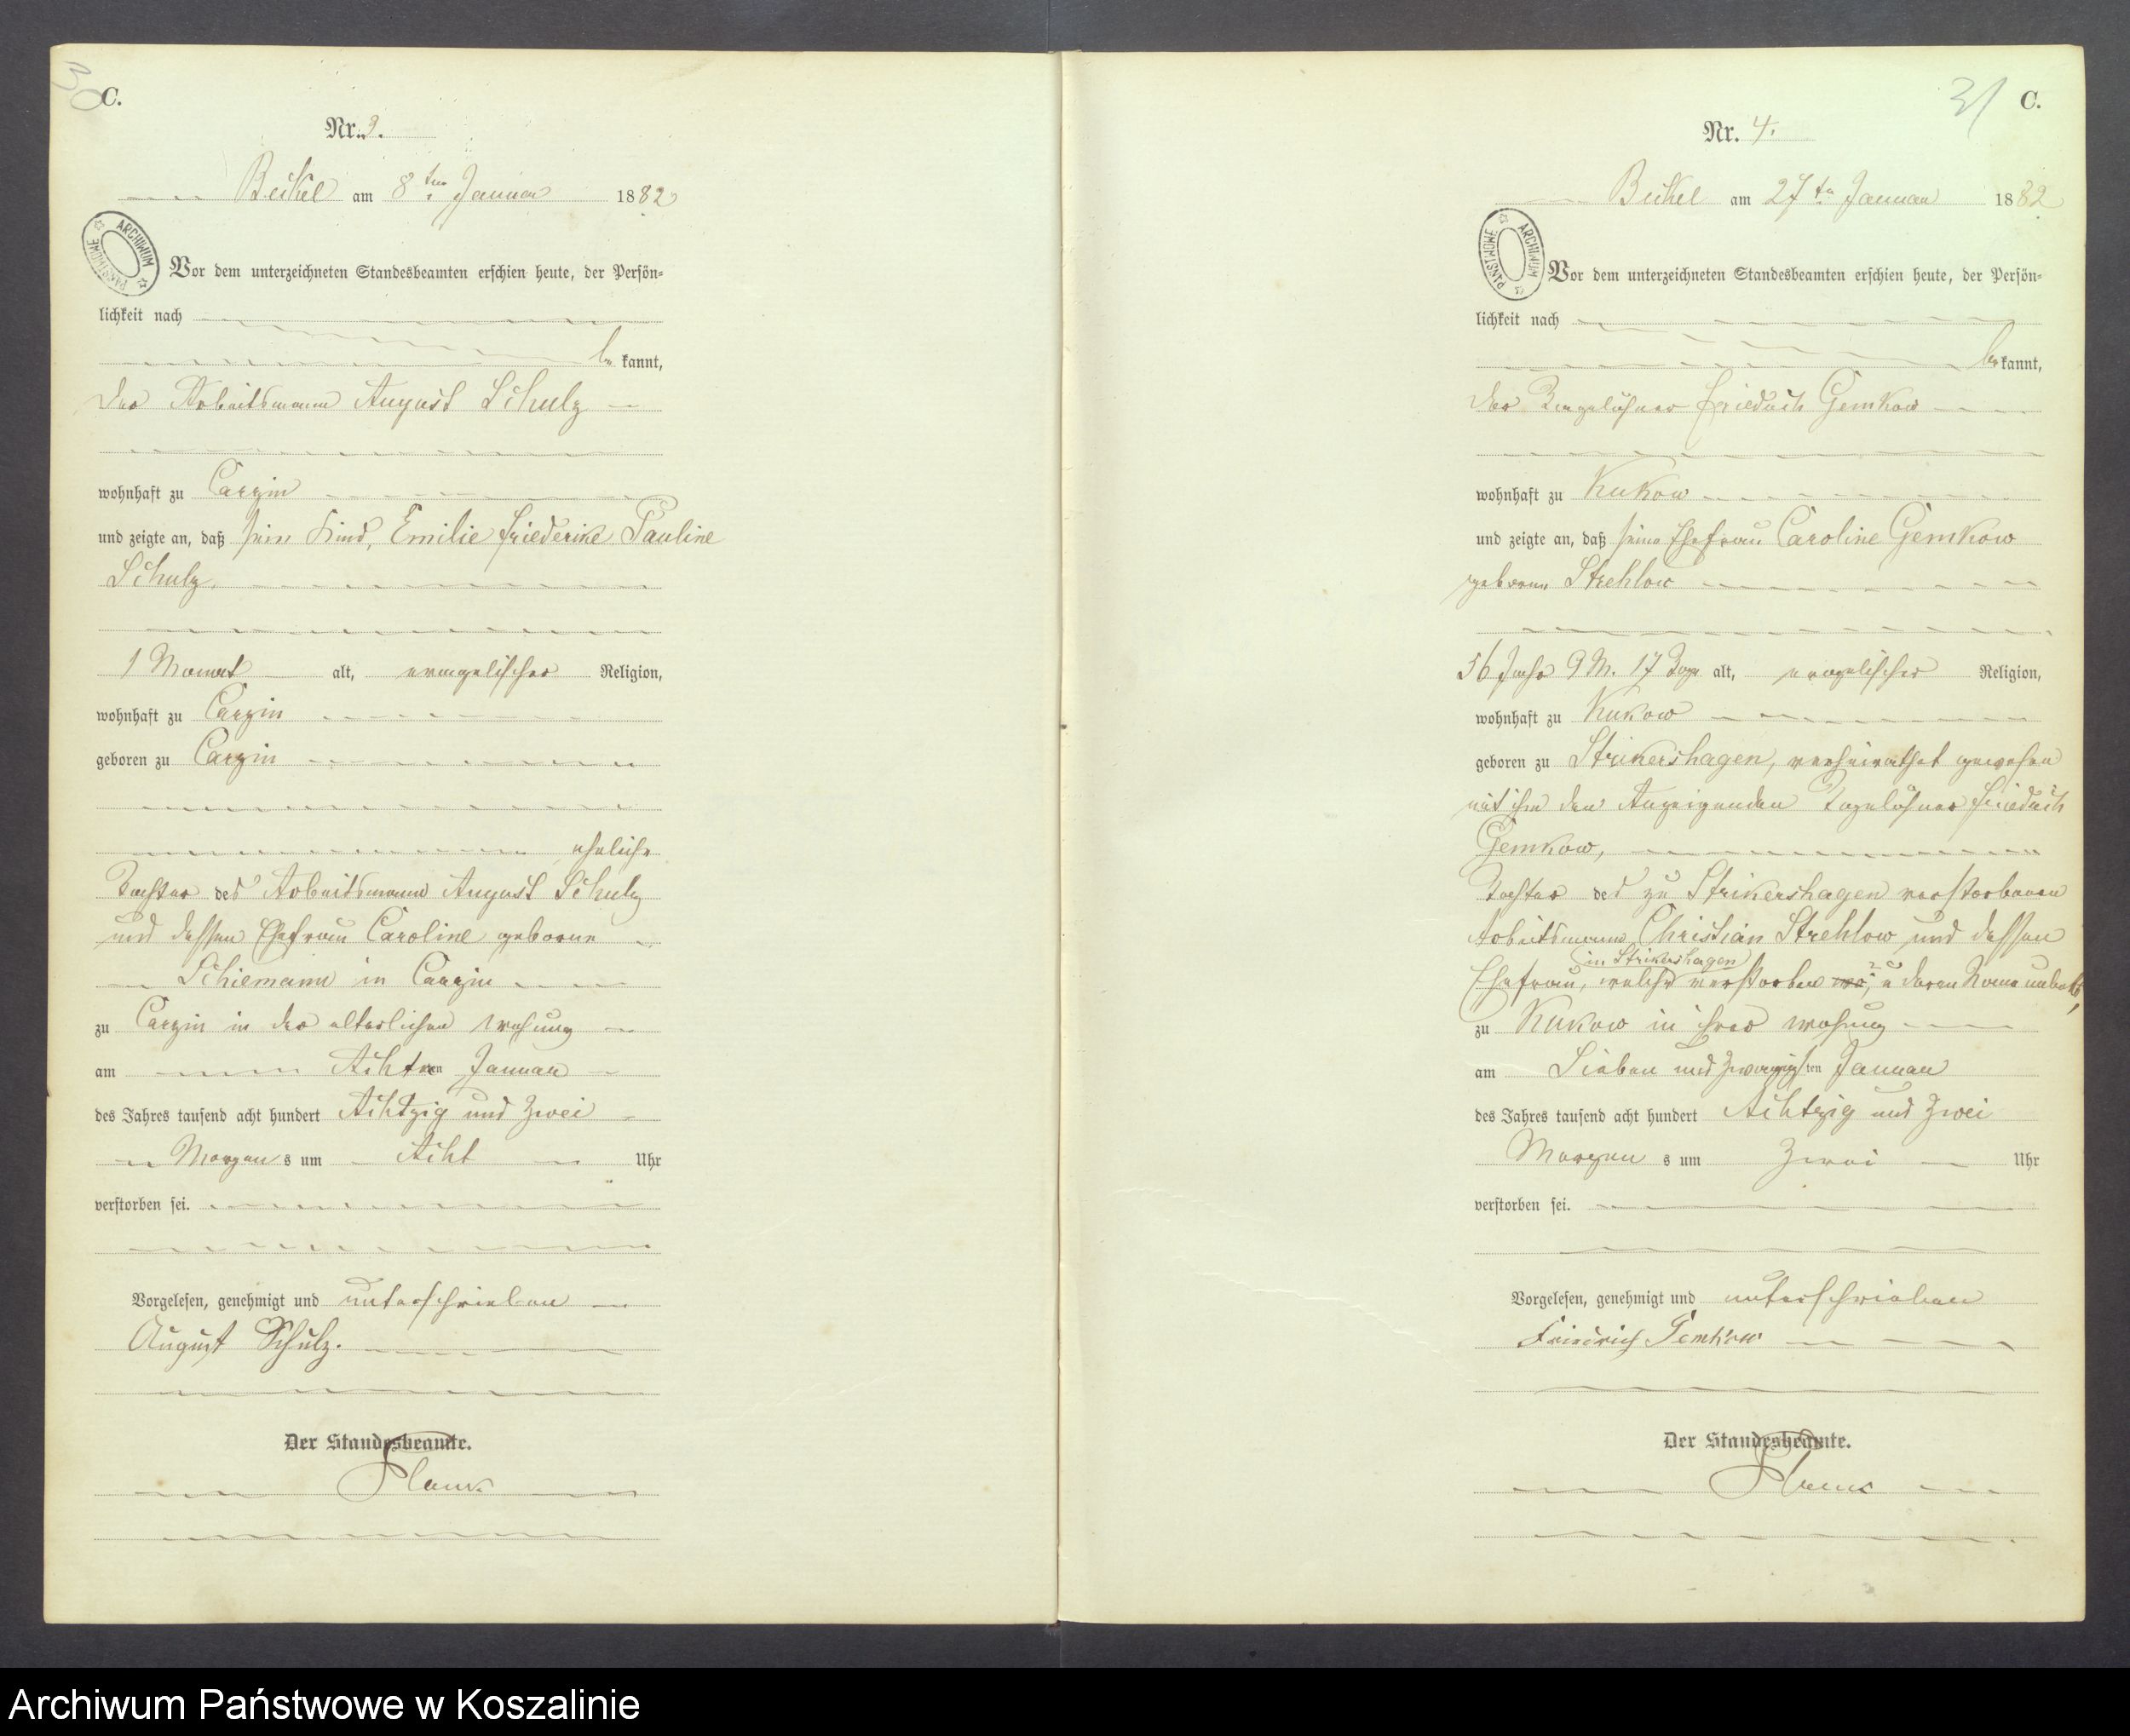 30
C.
Nr. 3.
Beikel am 8ten Januar 1882
ARCHIWUM PAŃSTWOWE
Vor dem unterzeichneten Standesbeamten erschien heute, der Persön-
lichkeit nach
be kannt,
der Arbeitsmann August Schulz
wohnhaft zu Carzin
und zeigte an, daß sein Kind, Emilie Friederike Pauline
Schulz,
1 Monat alt, evangelischer Religion,
wohnhaft zu Carzin
geboren zu Carzin
eheliche
Tochter des Arbeitsmann August Schulz
und dessen Ehefrau Caroline geborne
Schiemann in Carzin
zu Carzin in der elterlichen Wohung
am Achten Januar
des Jahres tausend acht hundert Achtzig und Zwei
Morgen s um Acht Uhr
verstorben sei.
Vorgelesen, genehmigt und unterschrieben
August Schulz.
Der Standesbeamte.
31
C.
Nr. 4.
Beikel am 27ten Januar 1882
ARCHIWUM PAŃSTWOWE
Vor dem unterzeichneten Standesbeamten erschien heute, der Persön-
lichkeit nach
be kannt,
der Tagelöhner Friedrich Gemkow
wohnhaft zu Kukow
und zeigte an, daß seine Ehefrau Caroline Gemkow
geborne Strehlow
56 Jahr 9 M. 17 Tage alt, evangelischer Religion,
wohnhaft zu Kukow
geboren zu Strikershagen, verheirathet gewesen
mit ihm den Anzeigenden Tagelöhner Friedrich
Gemkow,
Tochter des zu Strikershagen verstorbenen
Arbeitsmann Christian Strehlow und dessen
in Strikershagen
Ehefrau, welche verstorben u deren Name unbekt,
zu Kukow in ihrer Wohung
am Sieben und zwanzigsten Januar
des Jahres tausend acht hundert Achtzig und Zwei
Morgen s um Zwei Uhr
verstorben sei.
Vorgelesen, genehmigt und unterschrieben
Friedrich Gemkow
Der Standesbeamte.
Archiwum Państwowe w Koszalinie